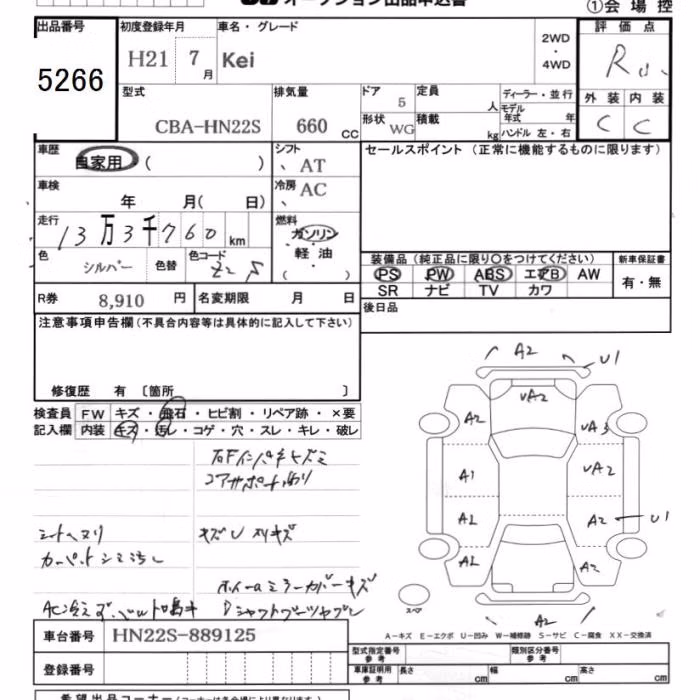 オークション出品申込書
①会場控
出品番号 初度登録年月 車名・グレード 2WD・4WD 評価点
5266 H21 7月 Kei R
型式 排気量 ドア 5 定員 人 ディーラー・並行 外装 内装
CBA-HN22S 660 cc 形状 WG 積載 kg モデル年式 年 ハンドル 左・右 C C
車歴 自家用 ( ) シフト AT セールスポイント (正常に機能するものに限ります)
車検 年 月( 日) 冷房 AC
走行 13万3千760 km 燃料 ガソリン・軽油・( )
色 シルバー 色替 色コード Z2S
装備品 (純正品に限り〇をつけてください) 新車保証書
PS PW ABS エアB AW 有・無
SR ナビ TV カワ
R券 8,910 円 名変期限 月 日 後日品
注意事項申告欄 (不具合内容等は具体的に記入して下さい)
修復歴 有 〔箇所 〕
検査員 FW キズ・飛石・ヒビ割・リペア跡・×要
記入欄 内装 キズ・汚レ・コゲ・穴・スレ・キレ・破レ
A2 U1
VA2
A2 VA3
A1 VA2
A2 A2 U1
A2 A2
A2
スペア
シートヘタリ
カーペットシミ汚レ
A-キズ E-エクボ U-凹み W-補修跡 S-サビ C-腐食 XX-交換済
車台番号 HN22S-889125
登録番号
型式指定番号 参考 類別区分番号 参考
車庫証明用 参考 長さ cm 幅 cm 高さ cm
希望出品コーナー